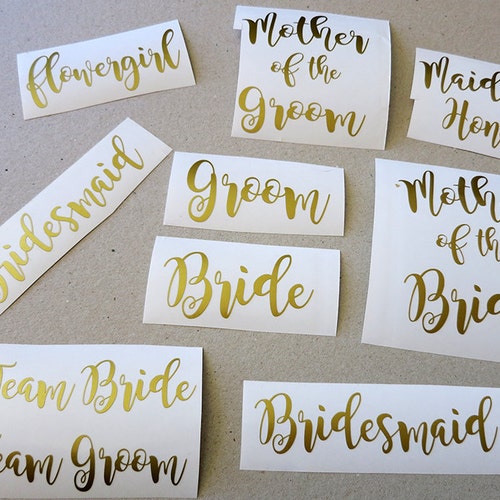 flowergirl
Mother
of the
Groom
Maid
Hon
Bridesmaid
Groom
Mothe
of the
Brid
Bride
Team Bride
Team Groom
Bridesmaid